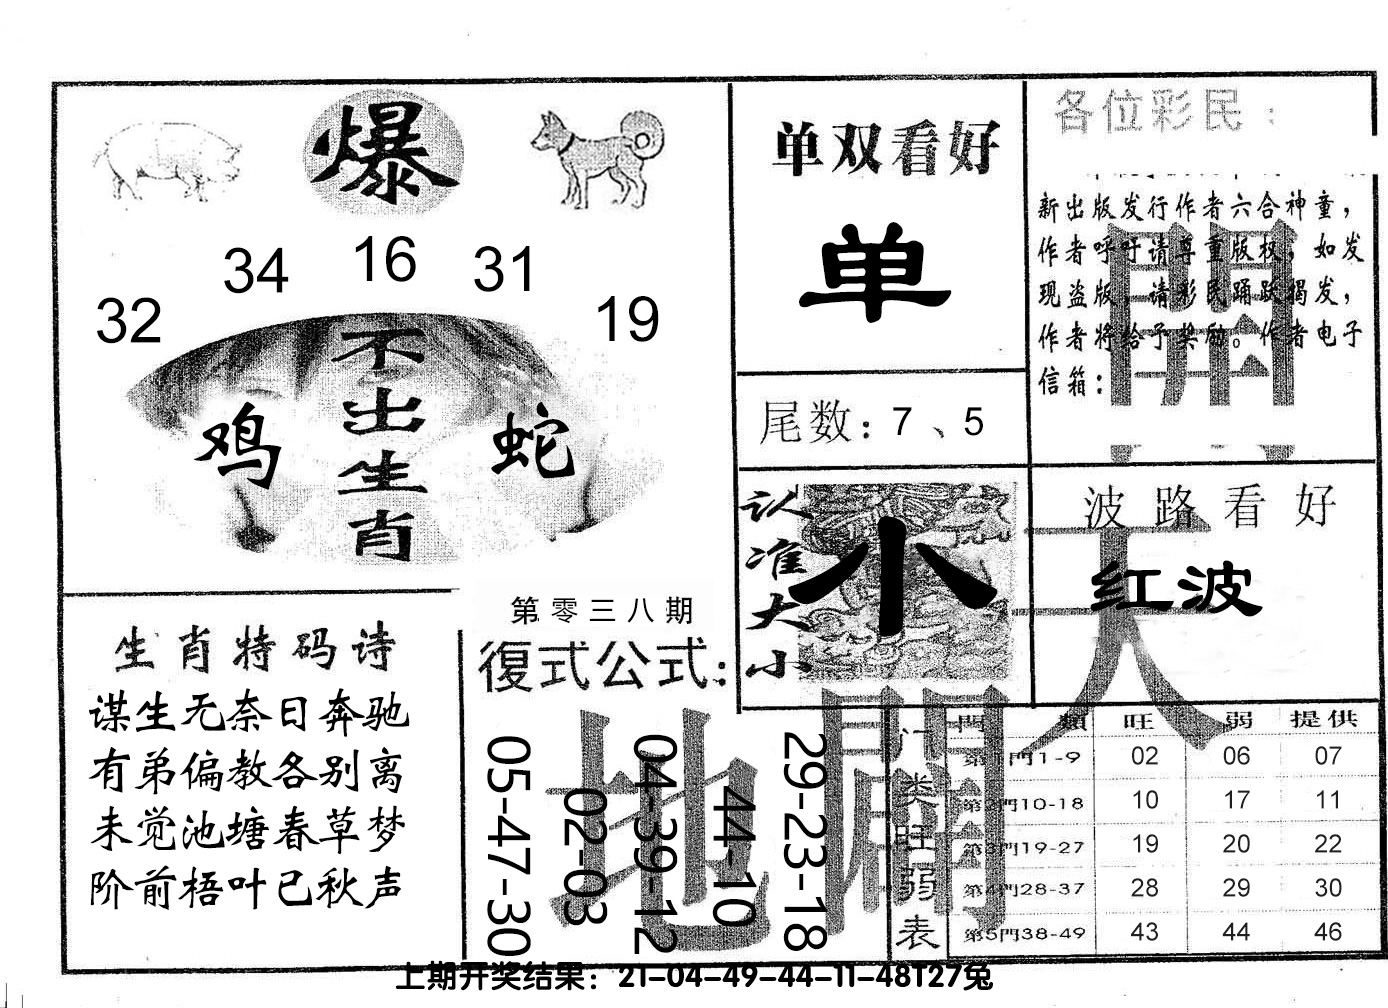 爆
34 16 31
32 19
不出生肖
鸡 蛇
单双看好
单
尾数：7、5
各位彩民：
新出版发行作者六合神童，
作者呼吁请尊重版权，如发
现盗版，请彩民踊跃揭发，
作者将给予奖励。作者电子
信箱：
開
认准大小
小
波路看好
红波
天
生肖特码诗
谋生无奈日奔驰
有弟偏教各别离
未觉池塘春草梦
阶前梧叶已秋声
第零三八期
復式公式：
05-47-30
02-03
04-39-12
44-10
29-23-18
地
闢
门类旺弱表
門類 旺 弱 提供
第1門1-9 02 06 07
第2門10-18 10 17 11
第3門19-27 19 20 22
第4門28-37 28 29 30
第5門38-49 43 44 46
上期开奖结果：21-04-49-44-11-48T27兔